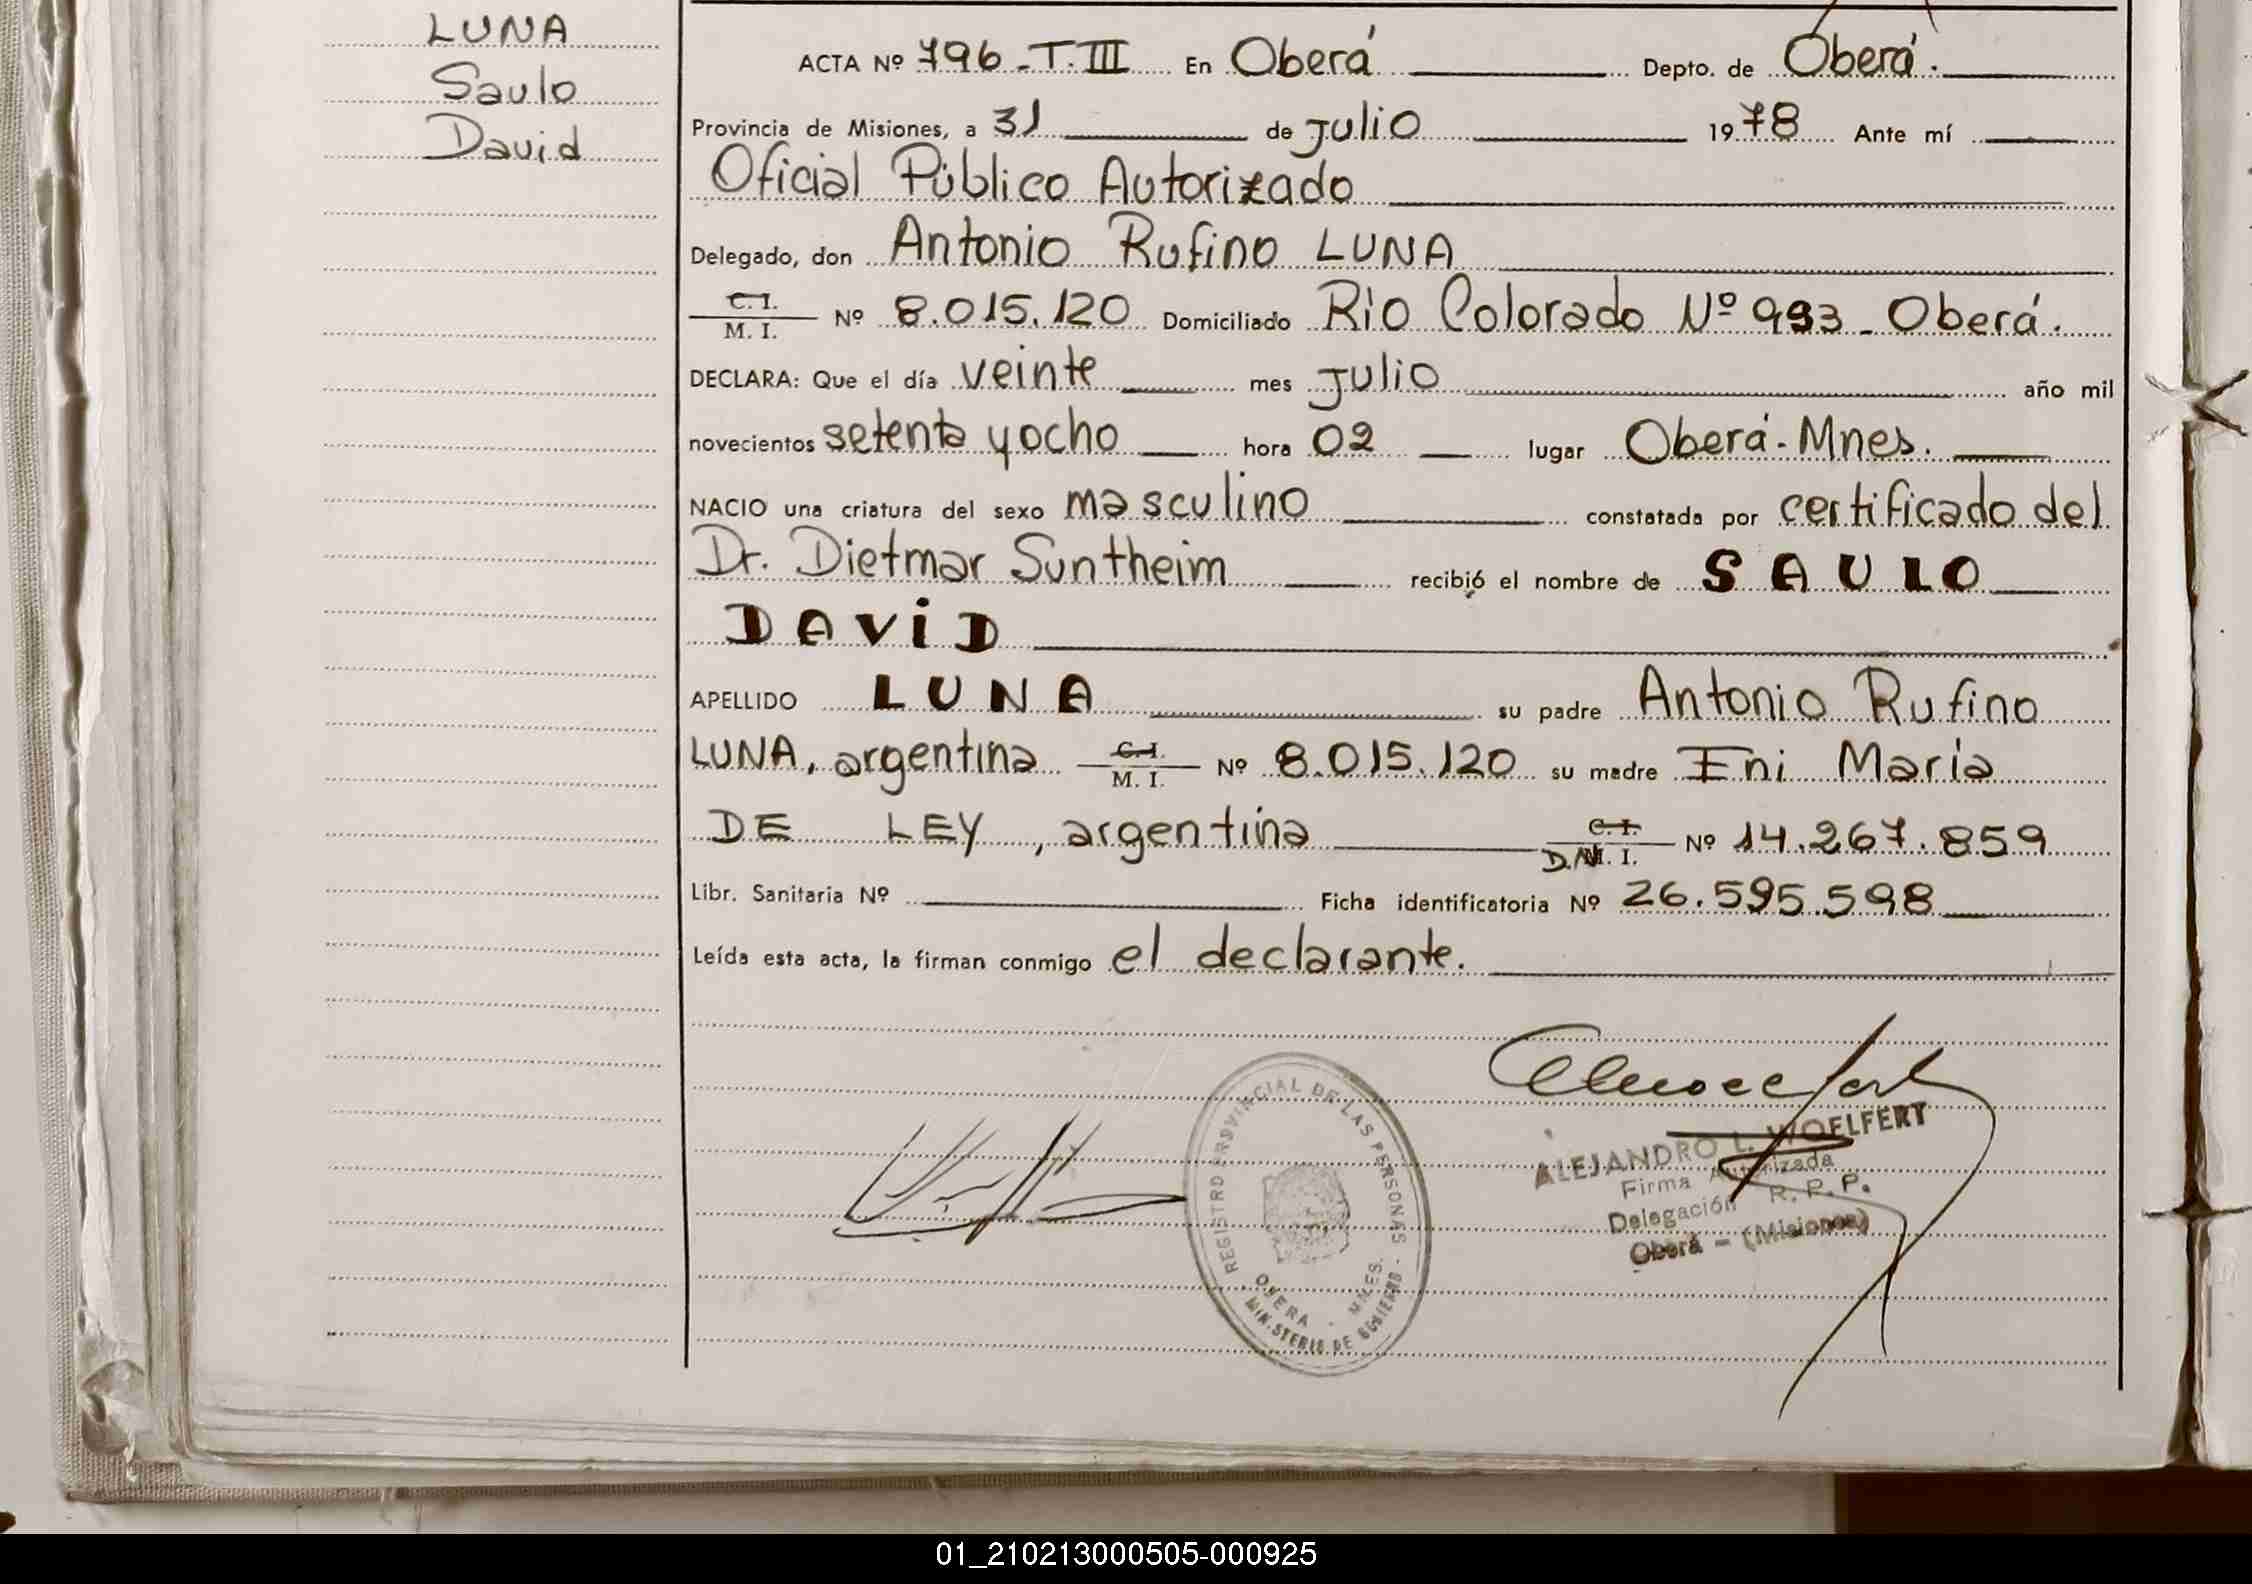 LUNA
Saulo
David
ACTA Nº 796-T.III En Oberá Depto. de Oberá.
Provincia de Misiones, a 31 de julio 1978 Ante mí
Oficial Público Autorizado
Delegado, don Antonio Rufino LUNA
C.I.
M. I. Nº 8.015.120 Domiciliado Rio Colorado Nº 993 - Oberá.
DECLARA: Que el día veinte mes julio año mil
novecientos setenta y ocho hora 02 lugar Oberá - Mnes.
NACIO una criatura del sexo masculino constatada por certificado del
Dr. Dietmar Suntheim recibió el nombre de SAULO
DAViD
APELLIDO LUNA su padre Antonio Rufino
LUNA, argentina C.I.
M. I. Nº 8.015.120 su madre Eni María
DE LEY, argentina C.I.
D.N.I. Nº 14.267.859
Libr. Sanitaria Nº Ficha identificatoria Nº 26.595.598
Leída esta acta, la firman conmigo el declarante.
REGISTRO PROVINCIAL DE LAS PERSONAS -
OBERA - MNES.
MINISTERIO DE GOBIERNO
ALEJANDRO L. WOELFERT
Firma Autorizada
Delegación R. P. P.
Oberá - (Misiones)
01_210213000505-000925